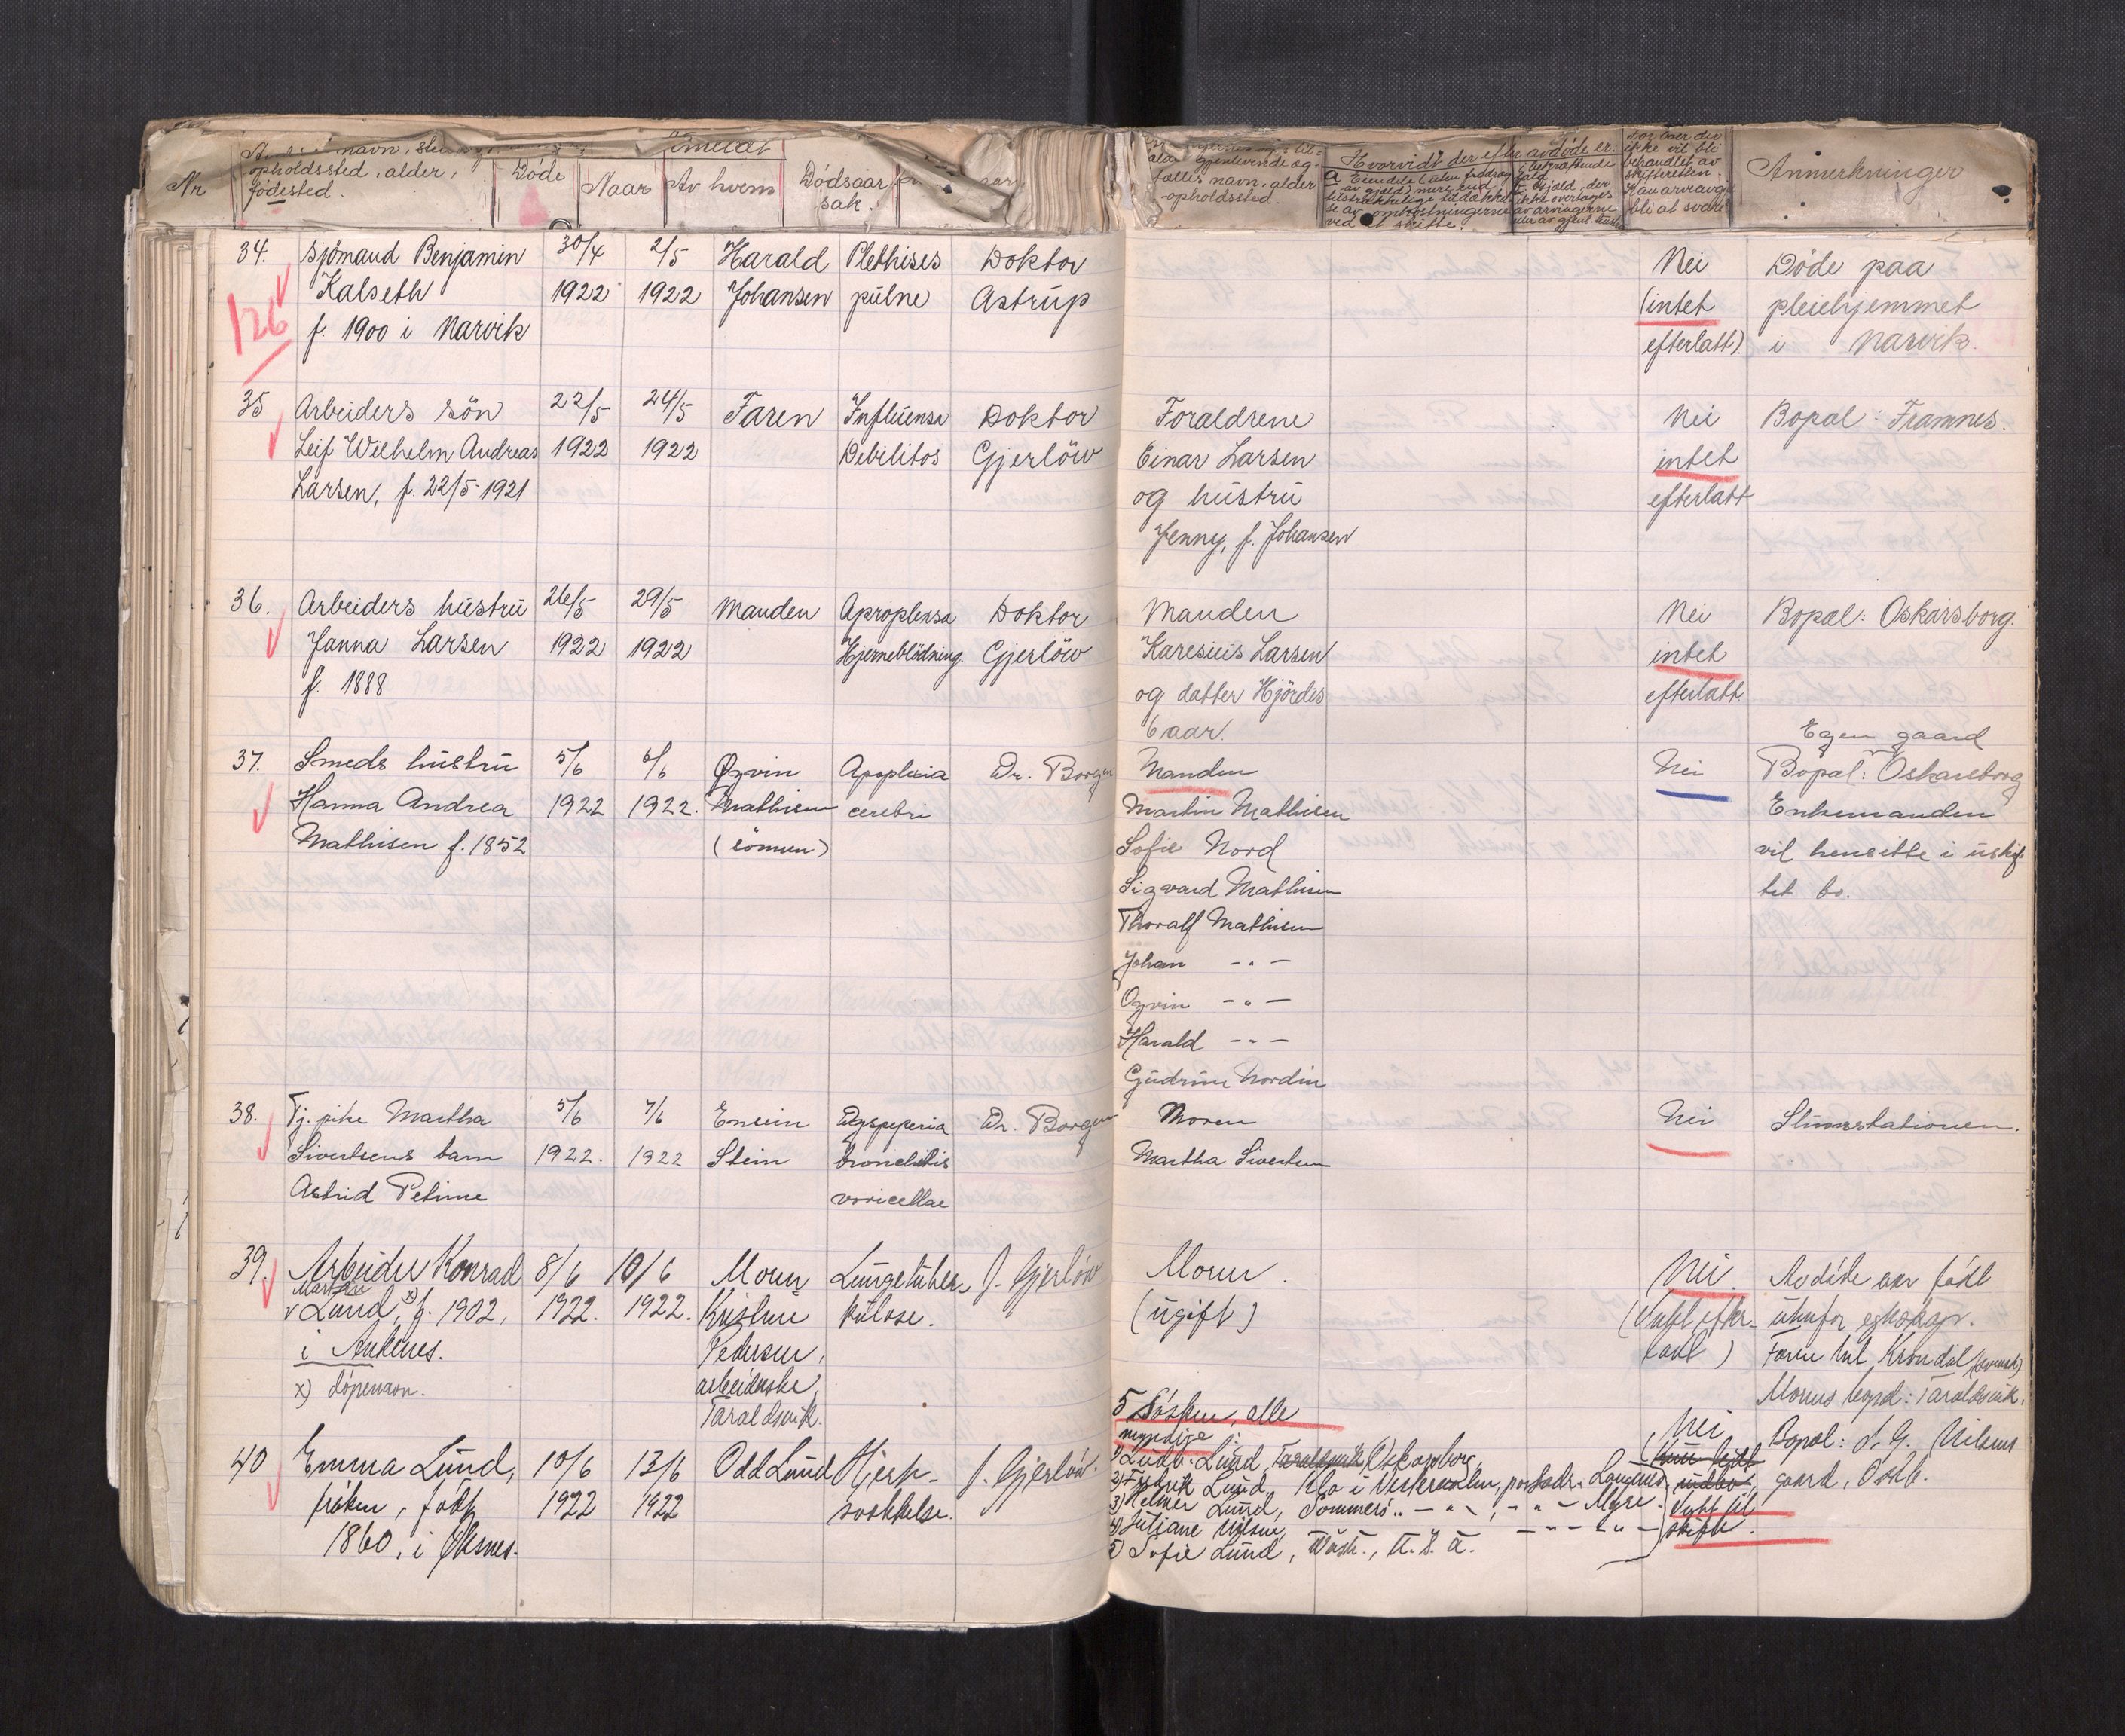 Nr
navn,
opholdssted, alder,
fødested.
Døde
Naar
Av hvem
Dødsaar
sak.
gjenlevende æg-
tefælles navn, alder
- opholdssted.
Hvorvidt der efter avdøde er:
ikke vil bli
behandlet av
skifteretten.
Anmerkninger
34. Sjømand Benjamin 30/4 2/5 Harald Plethises Doktor Nei Døde paa
Kalseth 1922 1922 Johansen pulne Astrup (intet pleiehjemmet
126 f. 1900 i Narvik efterlatt). i Narvik.
35 Arbeiders søn 22/5 24/5 Faren Influensa Doktor Foraldrene Nei Bopal: Framnes.
Leif Wilhelm Andreas 1922 1922 Debilitos Gjerløw Einar Larsen intet
Larsen, f. 22/5-1921 og hustru efterlatt
Jenny, f. Johansen
36. Arbeiders hustru 26/5 29/5 Manden Aproplensa Doktor Manden Nei Bopal: Oskarsborg.
Janna Larsen 1922 1922 Hjerneblødning. Gjerløw Karesius Larsen intet
f. 1888 og datter Hjørdes efterlatt.
6 aar.
Egen gaard
37. Smeds hustru 5/6 6/6 Øzvin Apoplexia Dr. Borgen Manden Nei Bopal: Oskarsborg
Hanna Andrea 1922 1922. Mathisen cerebri Martin Mathisen Enkemanden
Mathisen f. 1852 (sønnen) Sofie Nord vil hensitte i uskif-
Sigvard Mathisen tet bo.
Thoralf Mathisen
Johan - " -
Ozvin - " -
Harald - " -
Gudrun Nordin
38. Tj. pike Martha 5/6 7/6 Ensein Dyspeperia Dr. Borgen Moren Nei Slumstationen.
Sivertsens barn 1922. 1922 Stein bronchitis Martha Sivertsen
Astrid Petrine varicellae
39. Arbeider Konrad 8/6 10/6 Moren Lungetuber- J. Gjerløw Moren. Nei. Avdøde var født
Lund, x) f. 1902, 1922. 1922. Kristine kulose. (ugift) (Intet efter- utenfor egteskap.
i Ankenes. Pedersen, latt) Faren hed Krondal (svensk)
x) døpenavn. arbeiderske, Morens bopal: Taraldsvik.
Taraldsvik.
5 Søsken, alle
myndige:
40 Emma Lund, 10/6 13/6 Odd Lund Hjerte- J. Gjerløw. 1) Ludv. Lund, Taraldsvik (Oskarsborg, Nei Bopal: J. G. Nilsens
frøken, født 1922 1922 2) Fredrik Lund, Klo i Vesteraalen, gaard, Oskb.
1860, i Øksnes. 3) Helmer Lund, Sommerø " - " - Myre.
4) Juliane Nilsen, - " - " -
5) Sofie Lund, Wash., U. S. A. skifte.